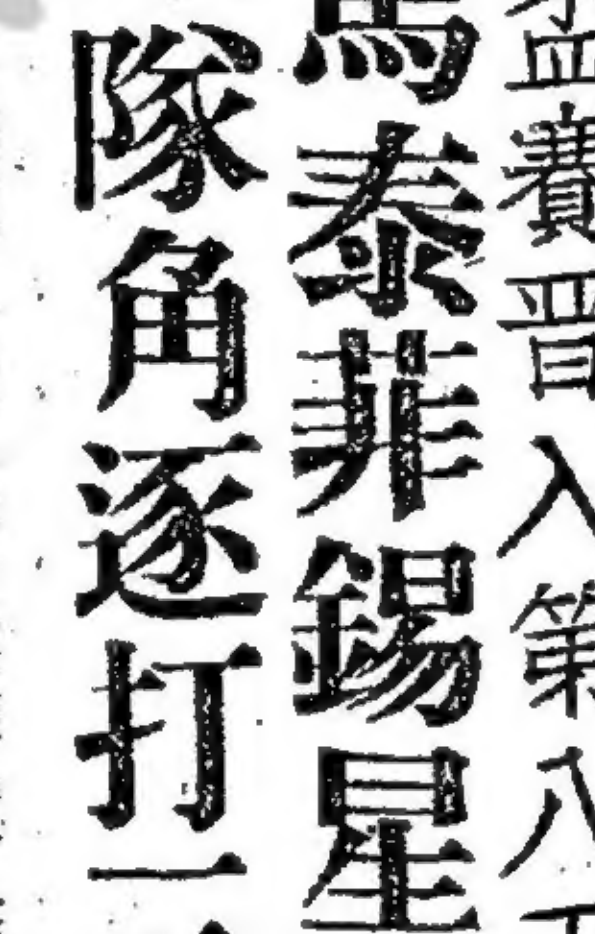 盃賽晋入第八
馬泰菲錫星
隊角逐打一